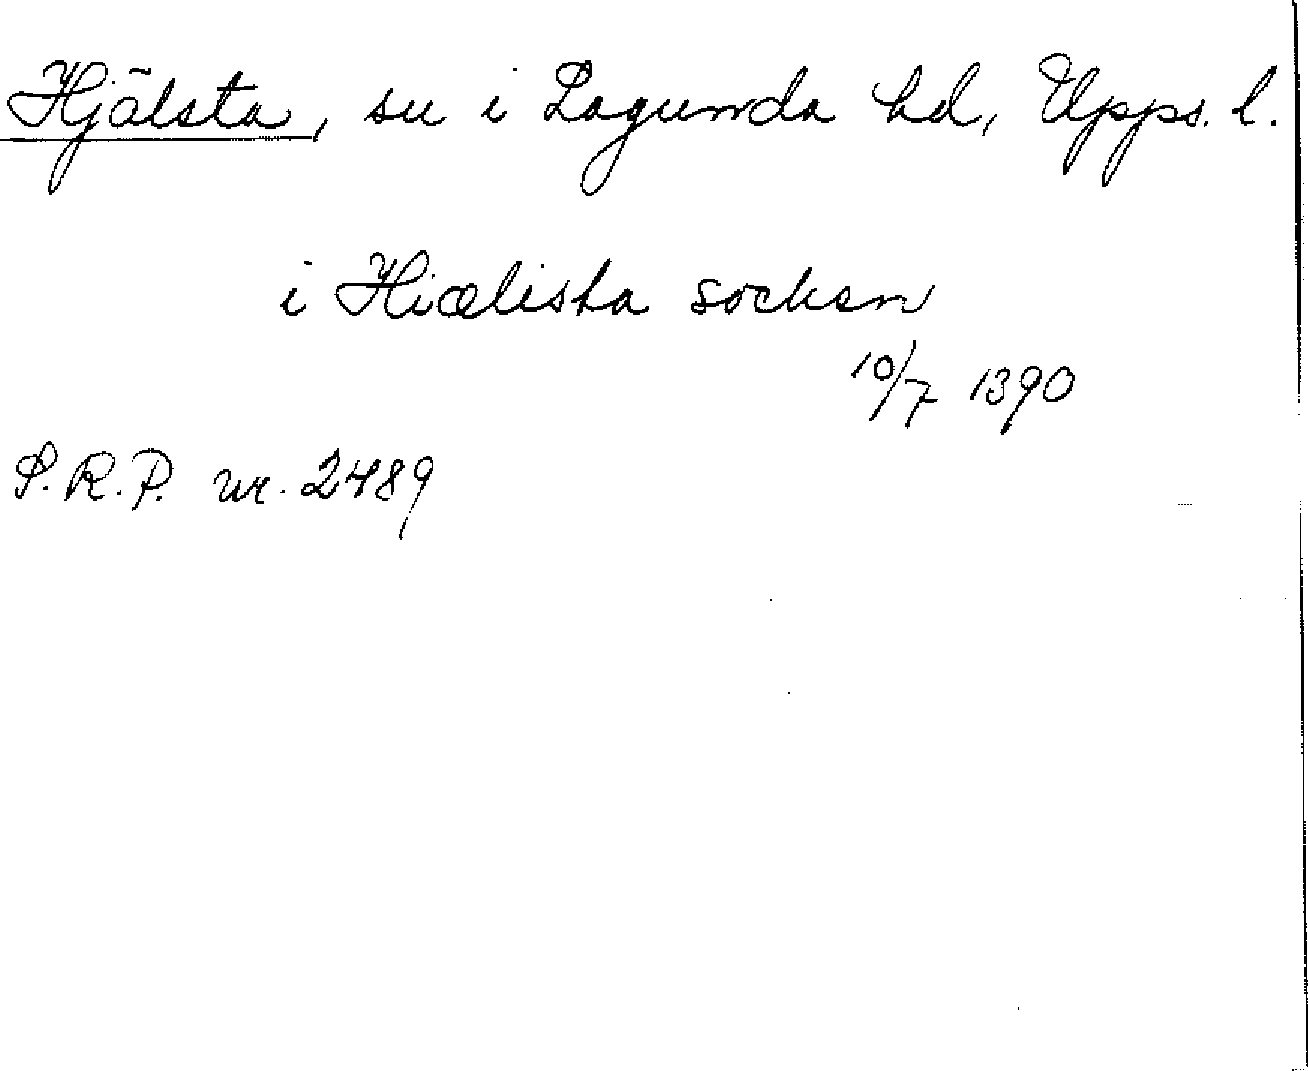 Hjälsta, sn i Lagunda hd, Upps. l.
i Hiælista socken
10/7 1390
S.R.P. nr. 2489